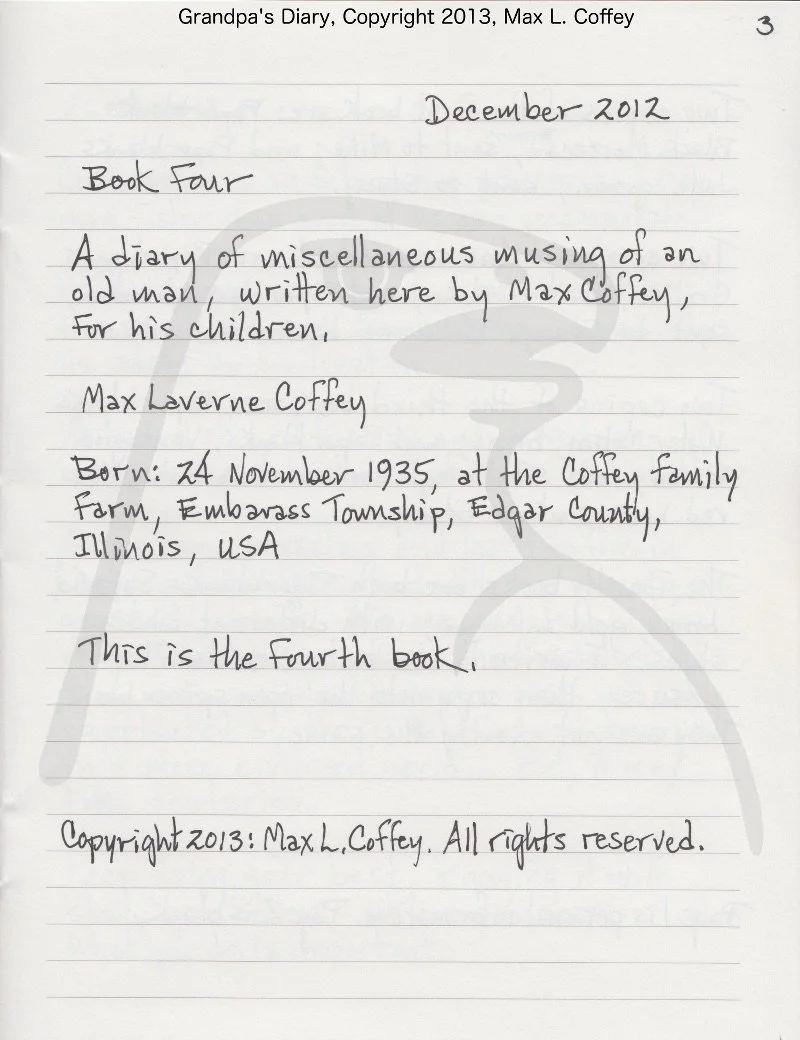 Grandpa's Diary, Copyright 2013, Max L. Coffey
3
December 2012
Book Four
A diary of miscellaneous musing of an
old man, written here by Max Coffey,
for his children.
Max Laverne Coffey
Born: 24 November 1935, at the Coffey family
farm, Embarass Township, Edgar County,
Illinois, USA
This is the fourth book.
Copyright 2013: Max L. Coffey. All rights reserved.